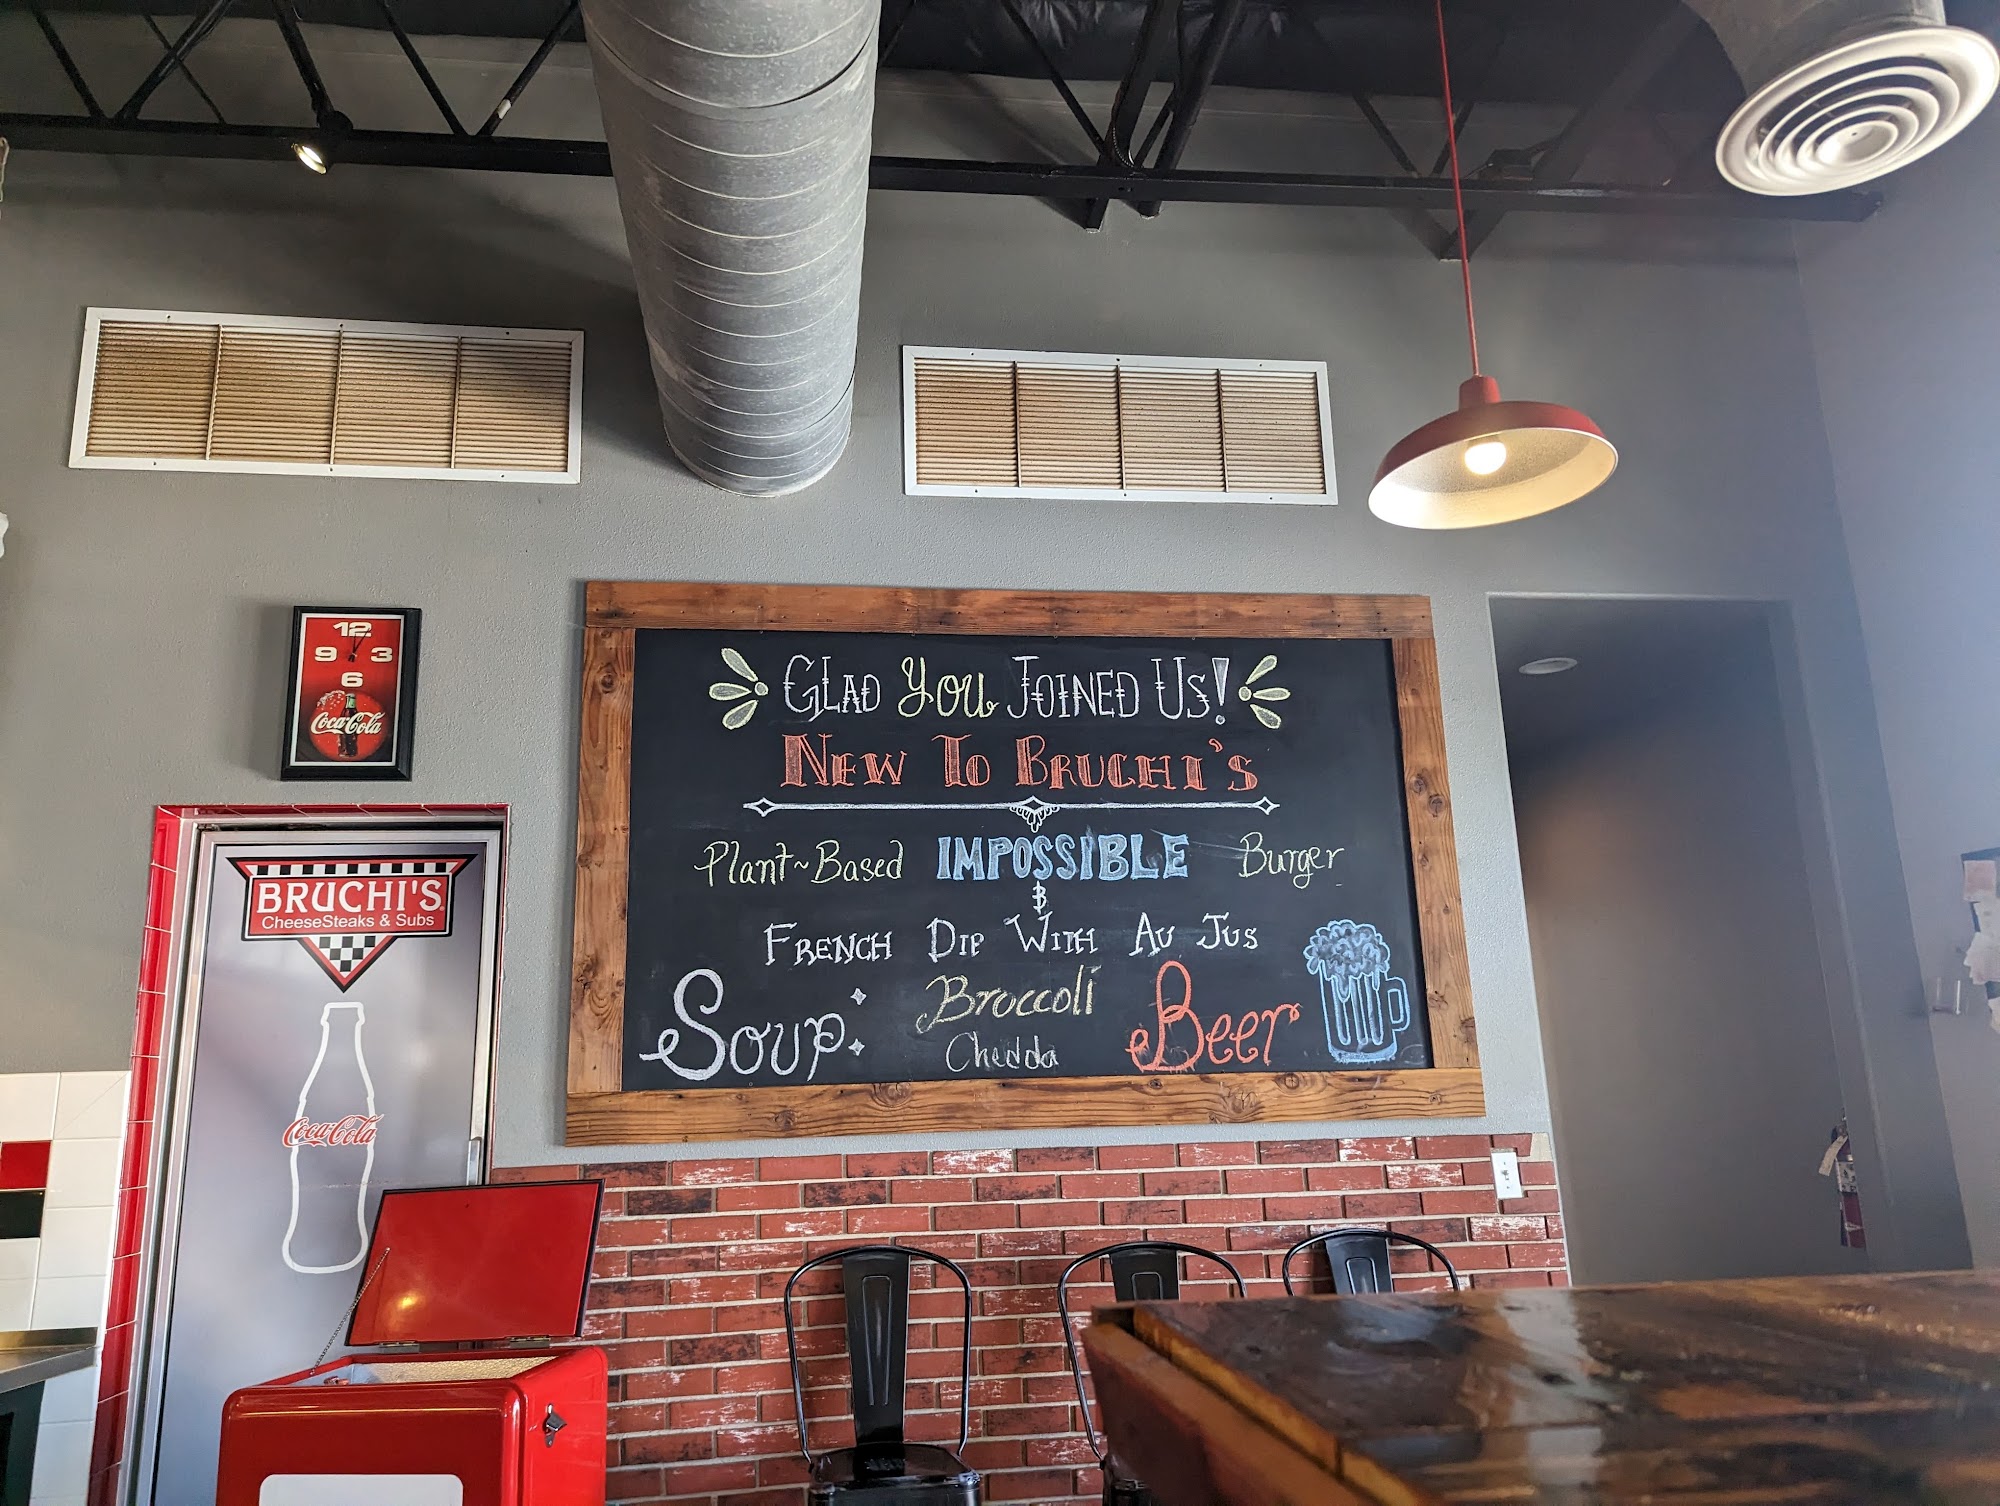 12
9 3
6
Coca-Cola
GLAD YOU JOINED US!
NEW TO BRUCHI'S
Plant~Based IMPOSSIBLE Burger
&
FRENCH DIP WITH AU JUS
Soup
Broccoli
Chedda
Beer
BRUCHI'S
CheeseSteaks & Subs
Coca-Cola